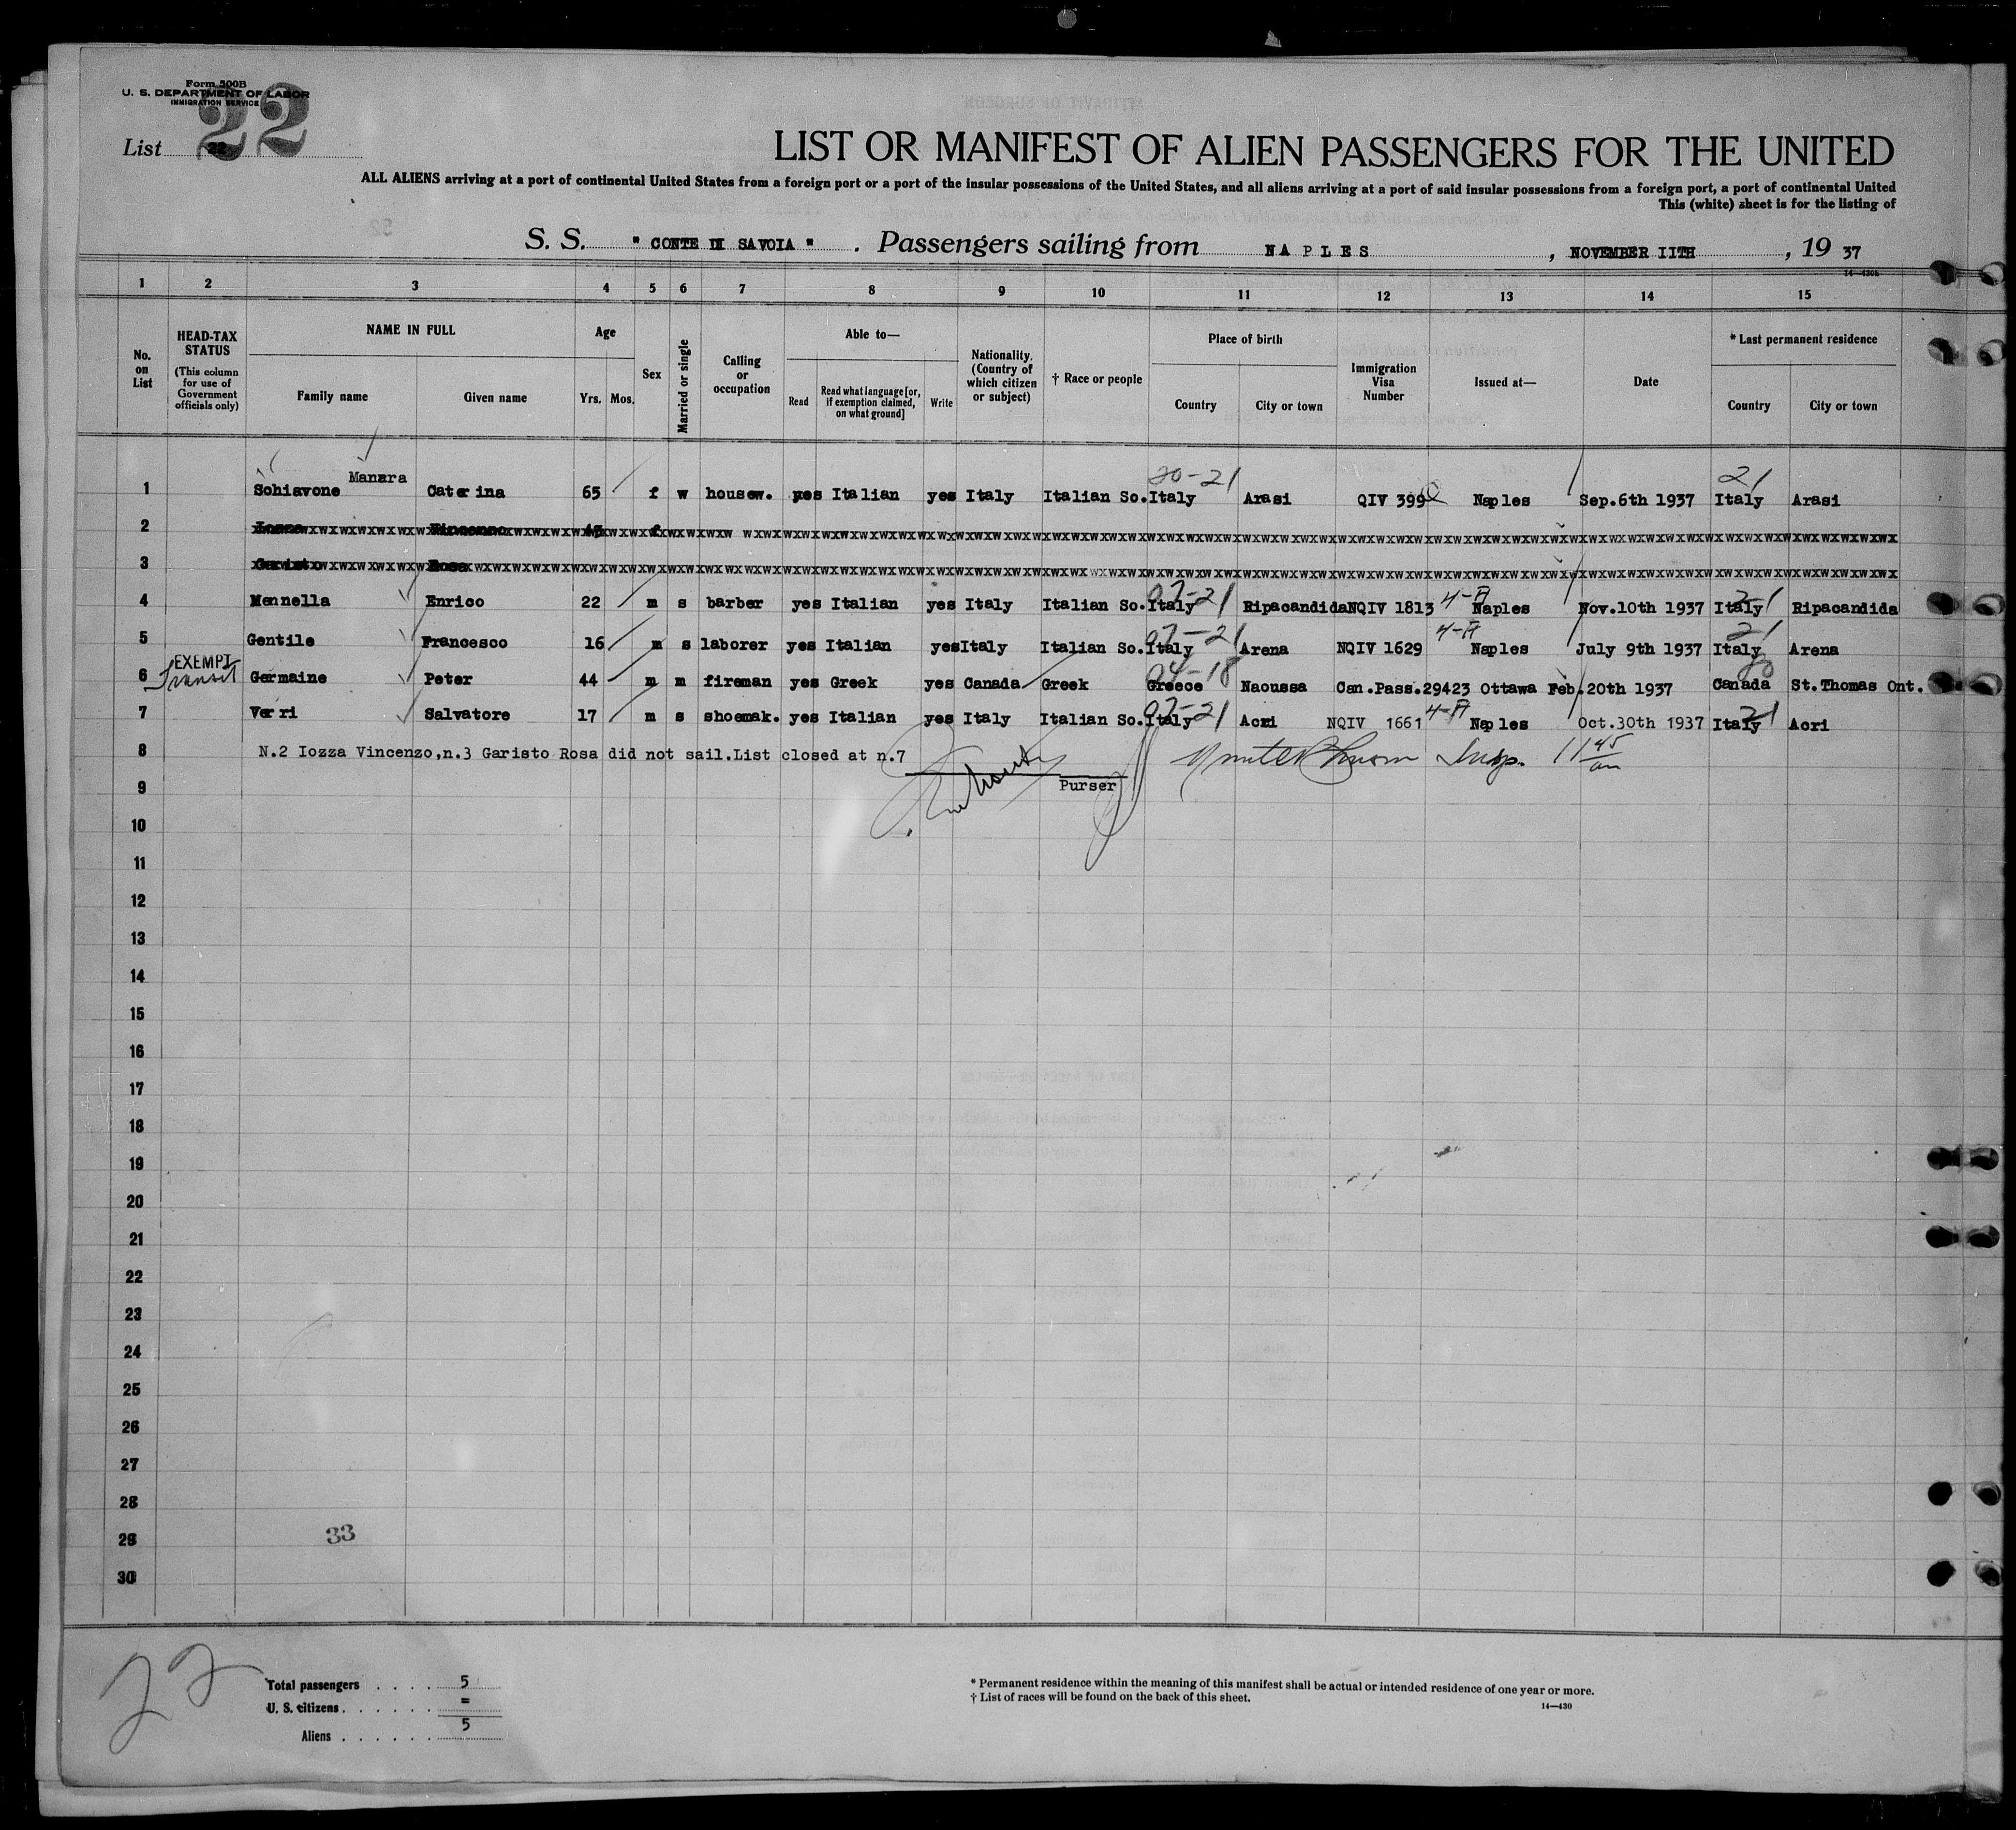 Form 500B
U. S. DEPARTMENT OF LABOR
IMMIGRATION SERVICE
22
List 22
LIST OR MANIFEST OF ALIEN PASSENGERS FOR THE UNITED
ALL ALIENS arriving at a port of continental United States from a foreign port or a port of the insular possessions of the United States, and all aliens arriving at a port of said insular possessions from a foreign port, a port of continental United
This (white) sheet is for the listing of
S. S. " CONTE DI SAVOIA " . Passengers sailing from NAPLES , NOVEMBER 11TH , 19 37
14—430b
1 2 3 4 5 6 7 8 9 10 11 12 13 14 15
No. on List
HEAD-TAX STATUS
(This column for use of Government officials only)
NAME IN FULL
Family name Given name
Age
Yrs. Mos.
Sex
Married or single
Calling or occupation
Able to—
Read Read what language [or, if exemption claimed, on what ground] Write
Nationality. (Country of which citizen or subject)
† Race or people
Place of birth
Country City or town
Immigration Visa Number
Issued at—
Date
* Last permanent residence
Country City or town
20-21 21
1 Schiavone Manara Caterina 65 f w housew. yes Italian yes Italy Italian So. Italy Arasi QIV 399 Naples Sep.6th 1937 Italy Arasi
2 Iozza Vincenzo
3 Garisto Rosa
4 Mennella Enrico 22 m s barber yes Italian yes Italy Italian So. Italy 07-21 Ripacandida NQIV 1813 4-A Naples Nov.10th 1937 Italy 21 Ripacandida
5 Gentile Francesco 16 m s laborer yes Italian yes Italy Italian So. Italy 07-21 Arena NQIV 1629 4-A Naples July 9th 1937 Italy 21 Arena
EXEMPT
Transit
6 Germaine Peter 44 m m fireman yes Greek yes Canada Greek Greece 04-18 Naoussa Can.Pass.29423 Ottawa Feb.20th 1937 Canada St.Thomas Ont.
7 Verri Salvatore 17 m s shoemak. yes Italian yes Italy Italian So. Italy 07-21 Acri NQIV 1661 4-A Naples Oct.30th 1937 Italy 21 Acri
8 N.2 Iozza Vincenzo,n.3 Garisto Rosa did not sail.List closed at n.7
Insp. 11 45 am
9 Purser
10
11
12
13
14
15
16
17
18
19
20
21
22
23
24
25
26
27
28
29
33
30
22
Total passengers . . . . 5
U. S. citizens . . . . . . =
Aliens . . . . . . 5
* Permanent residence within the meaning of this manifest shall be actual or intended residence of one year or more.
† List of races will be found on the back of this sheet.
14—430